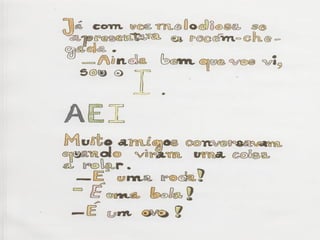 Já com voz melodiosa se
apresentava a recém-che-
gada.
—Ainda bem que vos vi,
sou o
I.
AEI
Muito amigos conversavam
quando viram uma coisa
a rolar.
—É uma roda!
—É uma bola!
—É um ovo!